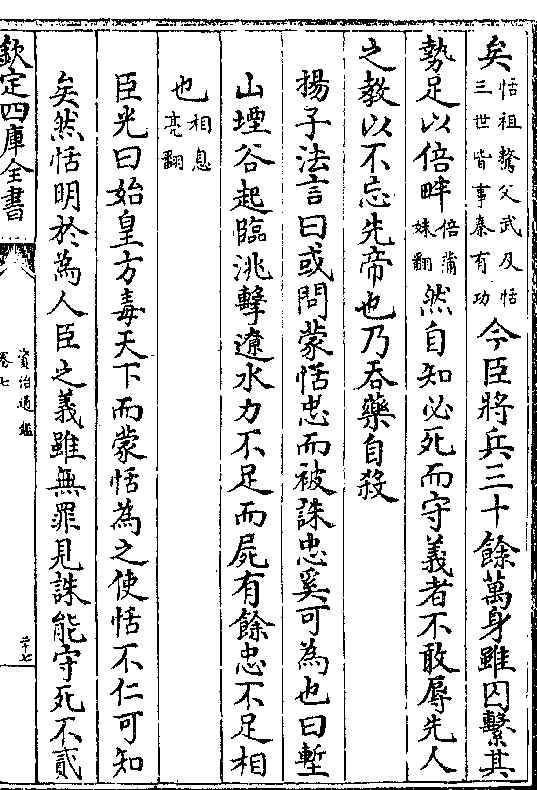 矣恬祖驁父武及恬三世皆事秦有功今臣將兵三十餘萬身雖囚繫其
勢足以倍畔倍蒲妹翻然自知必死而守義者不敢辱先人
之教以不忘先帝也乃吞藥自殺
揚子法言曰或問蒙恬忠而被誅忠奚可為也曰塹
山堙谷起臨洮擊遼水力不足而屍有餘忠不足相
也相息亮翻
臣光曰始皇方毒天下而蒙恬為之使恬不仁可知
矣然恬明於為人臣之義雖無罪見誅能守死不貳
欽定四庫全書
資治通鑑
卷七
二十七